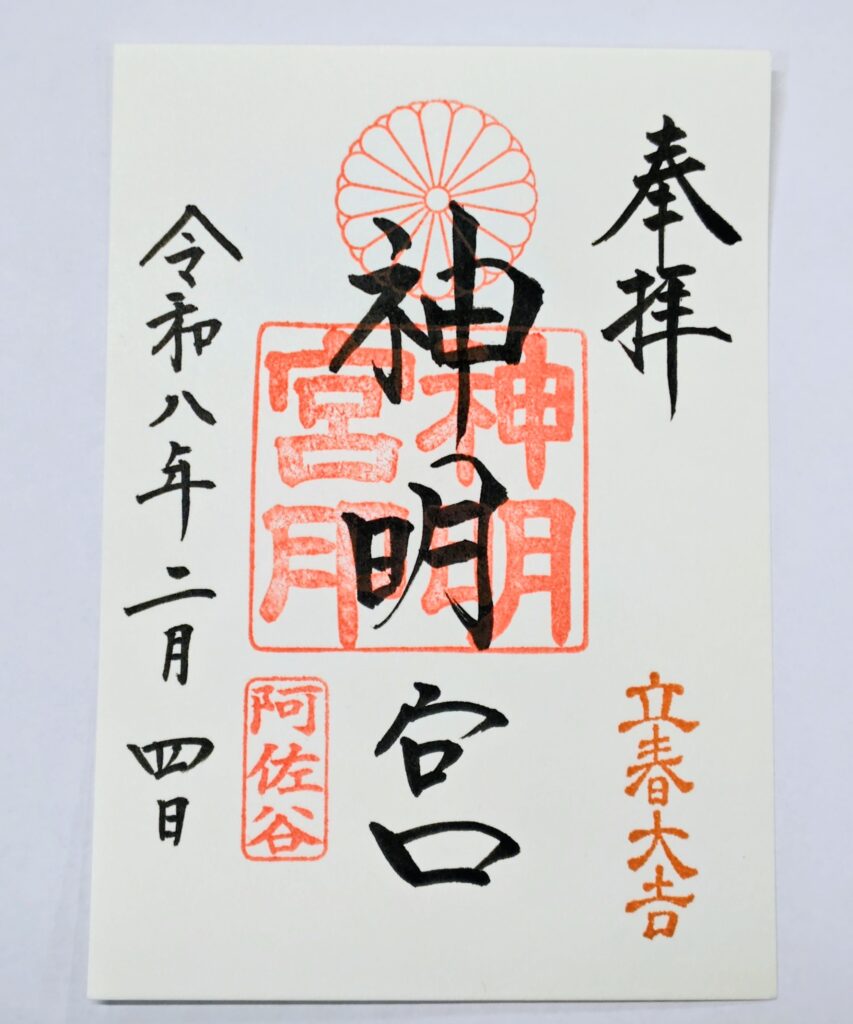 奉拝
立春大吉
神明宮
神明
宮
阿佐谷
令和八年二月四日